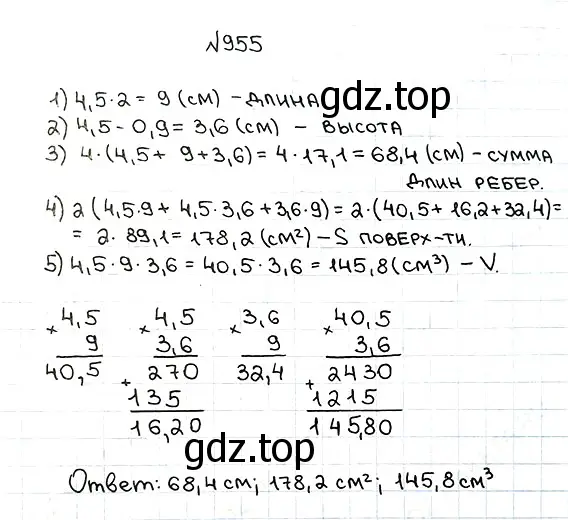 №955
1) 4,5·2 = 9 (см) – длина
gdz.top
2) 4,5 – 0,9 = 3,6 (см) – высота
3) 4·(4,5 + 9 + 3,6) = 4·17,1 = 68,4 (см) – сумма
длин ребер.
4) 2 (4,5·9 + 4,5·3,6 + 3,6·9) = 2·(40,5 + 16,2 + 32,4) =
= 2·89,1 = 178,2 (см²) – S поверх-ти.
5) 4,5·9·3,6 = 40,5·3,6 = 145,8 (см³) – V.
× 4,5 × 4,5 × 3,6 × 40,5
9 3,6 9 3,6
40,5 + 270 32,4 + 2430
135 1215
16,20 145,80
gdz.top
Ответ: 68,4 см; 178,2 см²; 145,8 см³